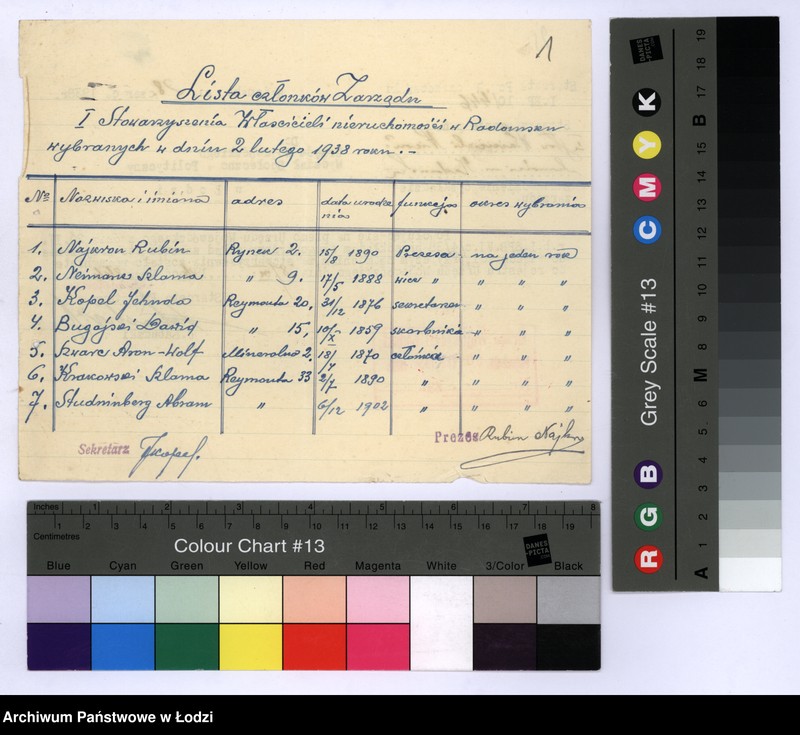 1
Lista członków Zarządu
I Stowarzyszenia Właścicieli nieruchomości w Radomsku
wybranych w dniu 2 lutego 1938 roku. -
No Nazwiska i imiona adres data urodze nia funkcja okres wybrania
1. Najkron Rubin Rynek 2. 15/8 1890 Prezesa na jeden rok
2. Neimann Szlama " 9. 17/5 1888 vice " " " "
3. Kopel Jehuda Reymonta 20, 31/12 1876 sekretarza " " "
4. Bugajski Dawid " 15, 10/X 1859 skarbnika " " "
5. Szwarc Aron-Wolf Mineralna 2. 18/ 1870 członka " " "
6. Krakowski Szlama Reymonta 33 2/7 1890 " " " "
7. Studninberg Abram " 6/12 1902 " " " "
Sekretarz JKopel.
Prezes Rubin Najkron
Inches 1 2 3 4 5 6 7 8
1 2 3 4 5 6 7 8 9 10 11 12 13 14 15 16 17 18 19
Centimetres
Colour Chart #13
DANES
-PICTA
.COM
Blue Cyan Green Yellow Red Magenta White 3/Color Black
Grey Scale #13
R G B C M Y K
DANES
-PICTA
.COM
A 1 2 3 4 5 6 M 8 9 10 11 12 13 14 15 B 17 18 19
Archiwum Państwowe w Łodzi